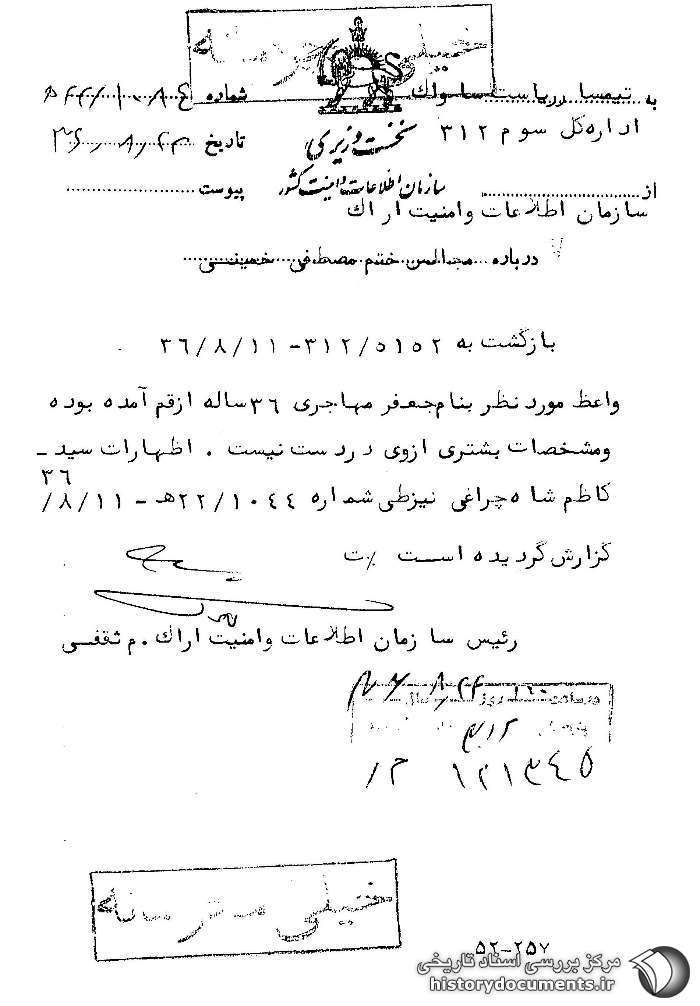 خیلی محرمانه
به تیمسار ریاست ساواك
شماره ۲۲/۱۰۸۴ ﻫ
اداره کل سوم ۳۱۲
نخست وزیری
تاریخ ۳۶/۸/۲۳
از
سازمان اطلاعات و امنیت کشور
پیوست
سازمان اطلاعات وامنیت اراك
درباره مجالس ختم مصطفی خمینی
بازگشت به ۳۱۲/۵۱۵۲ - ۳۶/۸/۱۱
واعظ مورد نظر بنام جعفر مهاجری ۳۶ ساله ازقم آمده بوده
ومشخصات بشتری ازوی در دست نیست . اظهارات سید ـ
کاظم شاه چراغی نیزطی شماره ۲۲/۱۰۴۴ﻫ - ۳۶/۸/۱۱
گزارش گردیده است ٪ت
رئیس سازمان اطلاعات وامنیت اراك . م ثقفی
۳۱۲
۱۲۱۳۴۵ /م
خیلی محرمانه
۵۲-۲۵۷
مرکز بررسی اسناد تاریخی
historydocuments.ir